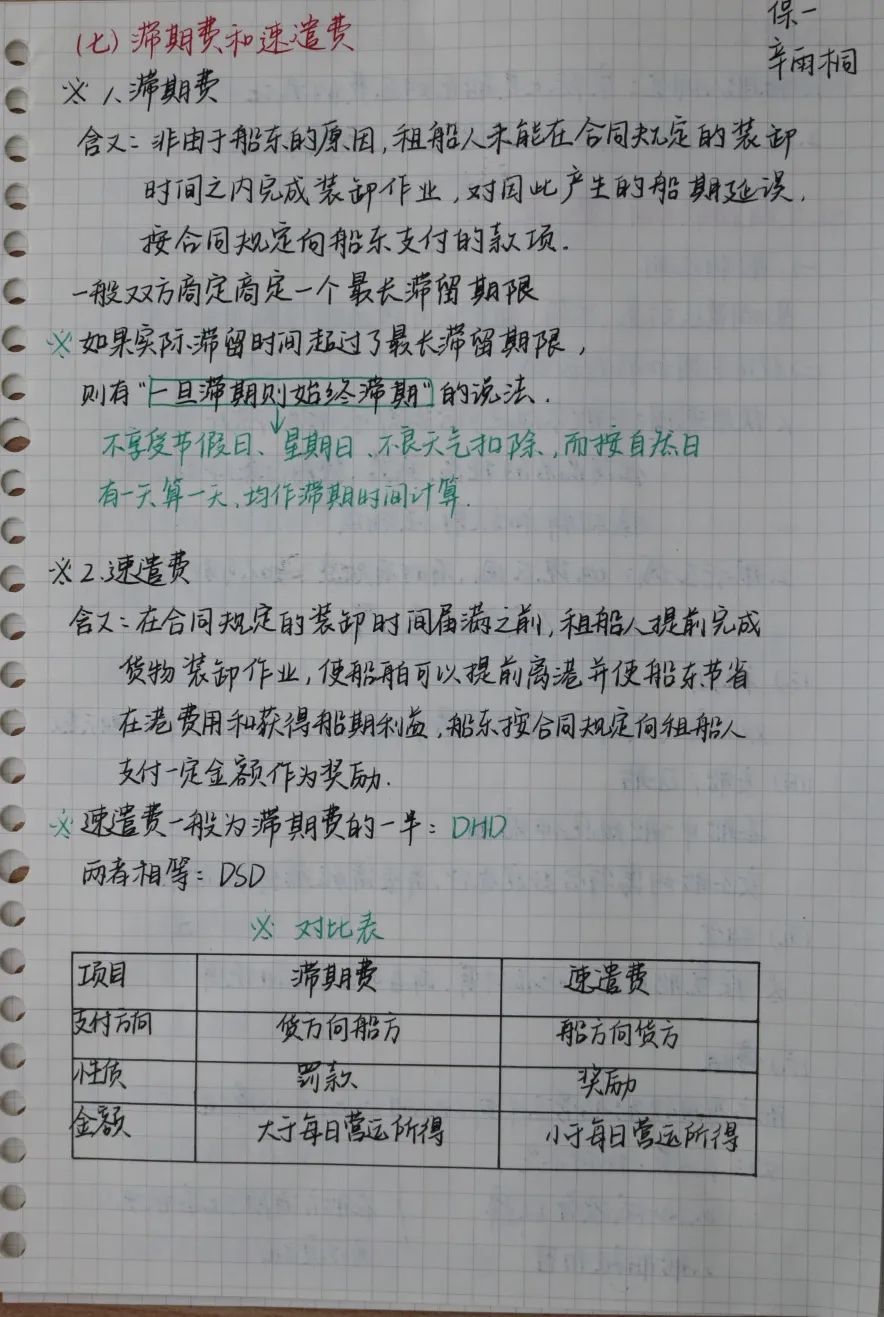 保一
辛雨桐
(七) 滞期费和速遣费
※ 1、滞期费
含义：非由于船东的原因，租船人未能在合同规定的装卸
时间之内完成装卸作业，对因此产生的船期延误，
按合同规定向船东支付的款项．
一般双方商定商定一个最长滞留期限
※ 如果实际滞留时间超过了最长滞留期限，
则有“一旦滞期则始终滞期”的说法．
↓
不享受节假日、星期日、不良天气扣除，而按自然日
有一天算一天，均作滞期时间计算．
※ 2、速遣费
含义：在合同规定的装卸时间届满之前，租船人提前完成
货物装卸作业，使船舶可以提前离港并使船东节省
在港费用和获得船期利益，船东按合同规定向租船人
支付一定金额作为奖励．
※ 速遣费一般为滞期费的一半：DHD
两者相等：DSD
※ 对比表
项目 滞期费 速遣费
支付方向 货方向船方 船方向货方
性质 罚款 奖励
金额 大于每日营运所得 小于每日营运所得